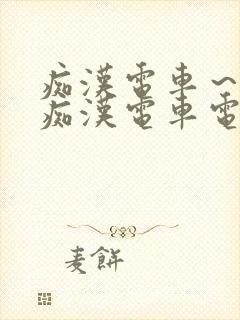 痴漢電車～
痴漢電車電
麦餅